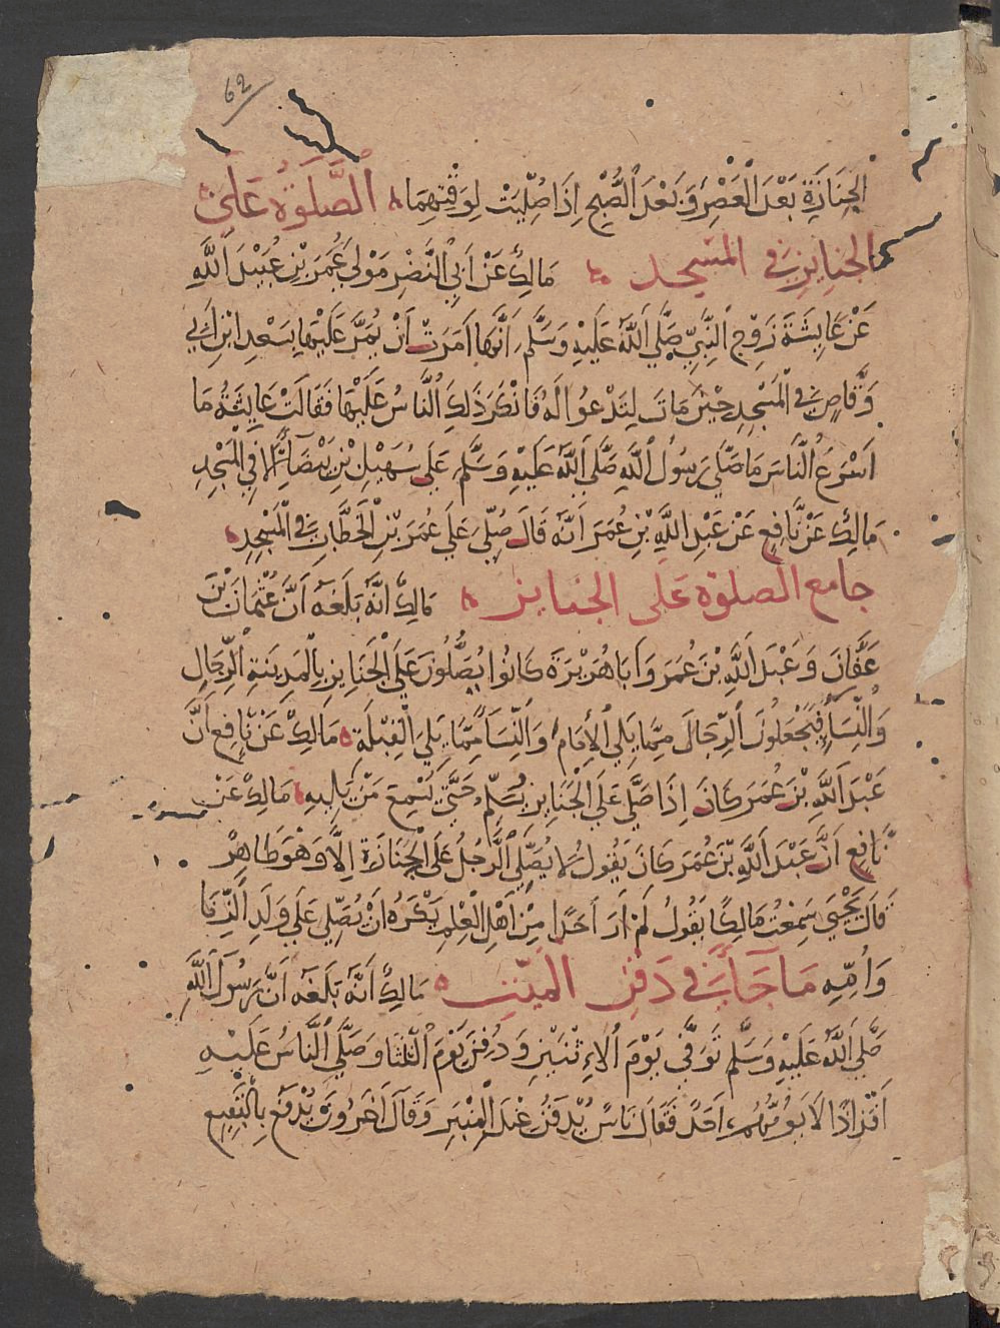 62
الْجِنَازَةِ بَعْدَ الْعَصْرِ وَبَعْدَ الصُّبْحِ إِذَا صُلِّيَتْ لِوَقْتِهِمَا الصَّلٰوةُ عَلَى
الجنايز في المسجد مَالِكٌ عَنْ اَبِي النَّضْرِ مَوْلَى عُمَرَ بْنِ عُبَيْدِ اللَّهِ
عَنْ عَايِشَةَ زَوْجِ النَّبِيِّ صَلَّى اللَّهُ عَلَيْهِ وَسَلَّمَ اَنَّهَا اَمَرَتْ اَنْ يُمَرَّ عَلَيْهَا بِسَعْدِ ابْنِ اَبِي
وَقَّاصٍ فِي الْمَسْجِدِ حِيْنَ مَاتَ لِتَدْعُوَا لَهُ فَانْكَرَ ذَلِكَ النَّاسُ عَلَيْهَا فَقَالَتْ عَايِشَةُ مَا
اَسْرَعَ النَّاسَ مَا صَلَّى رَسُولُ اللَّهِ صَلَّى اللَّهُ عَلَيْهِ وَسَلَّمَ عَلَى سُهَيْلِ بْنِ بَيْضَآءَ اِلَّا فِي الْمَسْجِدِ
مَالِكٌ عَنْ نَّافِعٍ عَنْ عَبْدِ اللَّهِ بْنِ عُمَرَ اَنَّهُ قَالَ صُلِّيَ عَلَى عُمَرَ بْنِ الْخَطَّابِ فِي الْمَسْجِدِ
جامع الصلوة على الجنايز مَالِكٌ اَنَّهُ بَلَغَهُ اَنَّ عُثْمَانَ بْنَ
عَفَّانَ وَعَبْدَ اللَّهِ بْنَ عُمَرَ وَاَبَا هُرَيْرَةَ كَانُوا يُصَلُّونَ عَلَى الْجَنَايِزِ بِالْمَدِينَةِ الرِّجَالِ
وَالنِّسَآءِ فَيَجْعَلُونَ الرِّجَالَ مِمَّا يَلِي الْاِمَامَ وَالنِّسَآءَ مِمَّا يَلِي الْقِبْلَةَ مَالِكٌ عَنْ نَّافِعٍ اَنَّ
عَبْدَ اللَّهِ بْنَ عُمَرَ كَانَ اِذَا صَلَّى عَلَى الْجَنَايِزِ يُسَلِّمُ حَتَّى يُسْمِعَ مَنْ يَلِيهِ مَالِكٌ عَنْ
نَّافِعٍ اَنَّ عَبْدَ اللَّهِ بْنَ عُمَرَ كَانَ يَقُولُ لَا يُصَلِّي الرَّجُلُ عَلَى الْجِنَازَةِ اِلَّا وَهُوَ طَاهِرٌ
قَالَ يَحْيَى سَمِعْتُ مَالِكًا يَقُولُ لَمْ اَرَ اَحَدًا مِنْ اَهْلِ الْعِلْمِ يَكْرَهُ اَنْ يُصَلِّيَ عَلَى وَلَدِ الزِّنَا
وَاُمِّهِ مَا جَآءَ فِي دَفْنِ الْمَيِّتِ مَالِكٌ اَنَّهُ بَلَغَهُ اَنَّ رَسُولَ اللَّهِ
صَلَّى اللَّهُ عَلَيْهِ وَسَلَّمَ تُوُفِّيَ يَوْمَ الْاِثْنَيْنِ وَدُفِنَ يَوْمَ الثُّلثَا وَصَلَّى النَّاسُ عَلَيْهِ
اَفْذَاذًا لَا يَؤُمُّهُمْ اَحَدٌ فَقَالَ نَاسٌ يُدْفَنُ عِنْدَ الْمِنْبَرِ وَقَالَ اٰخَرُونَ يُدْفَنُ بِالْبَقِيعِ